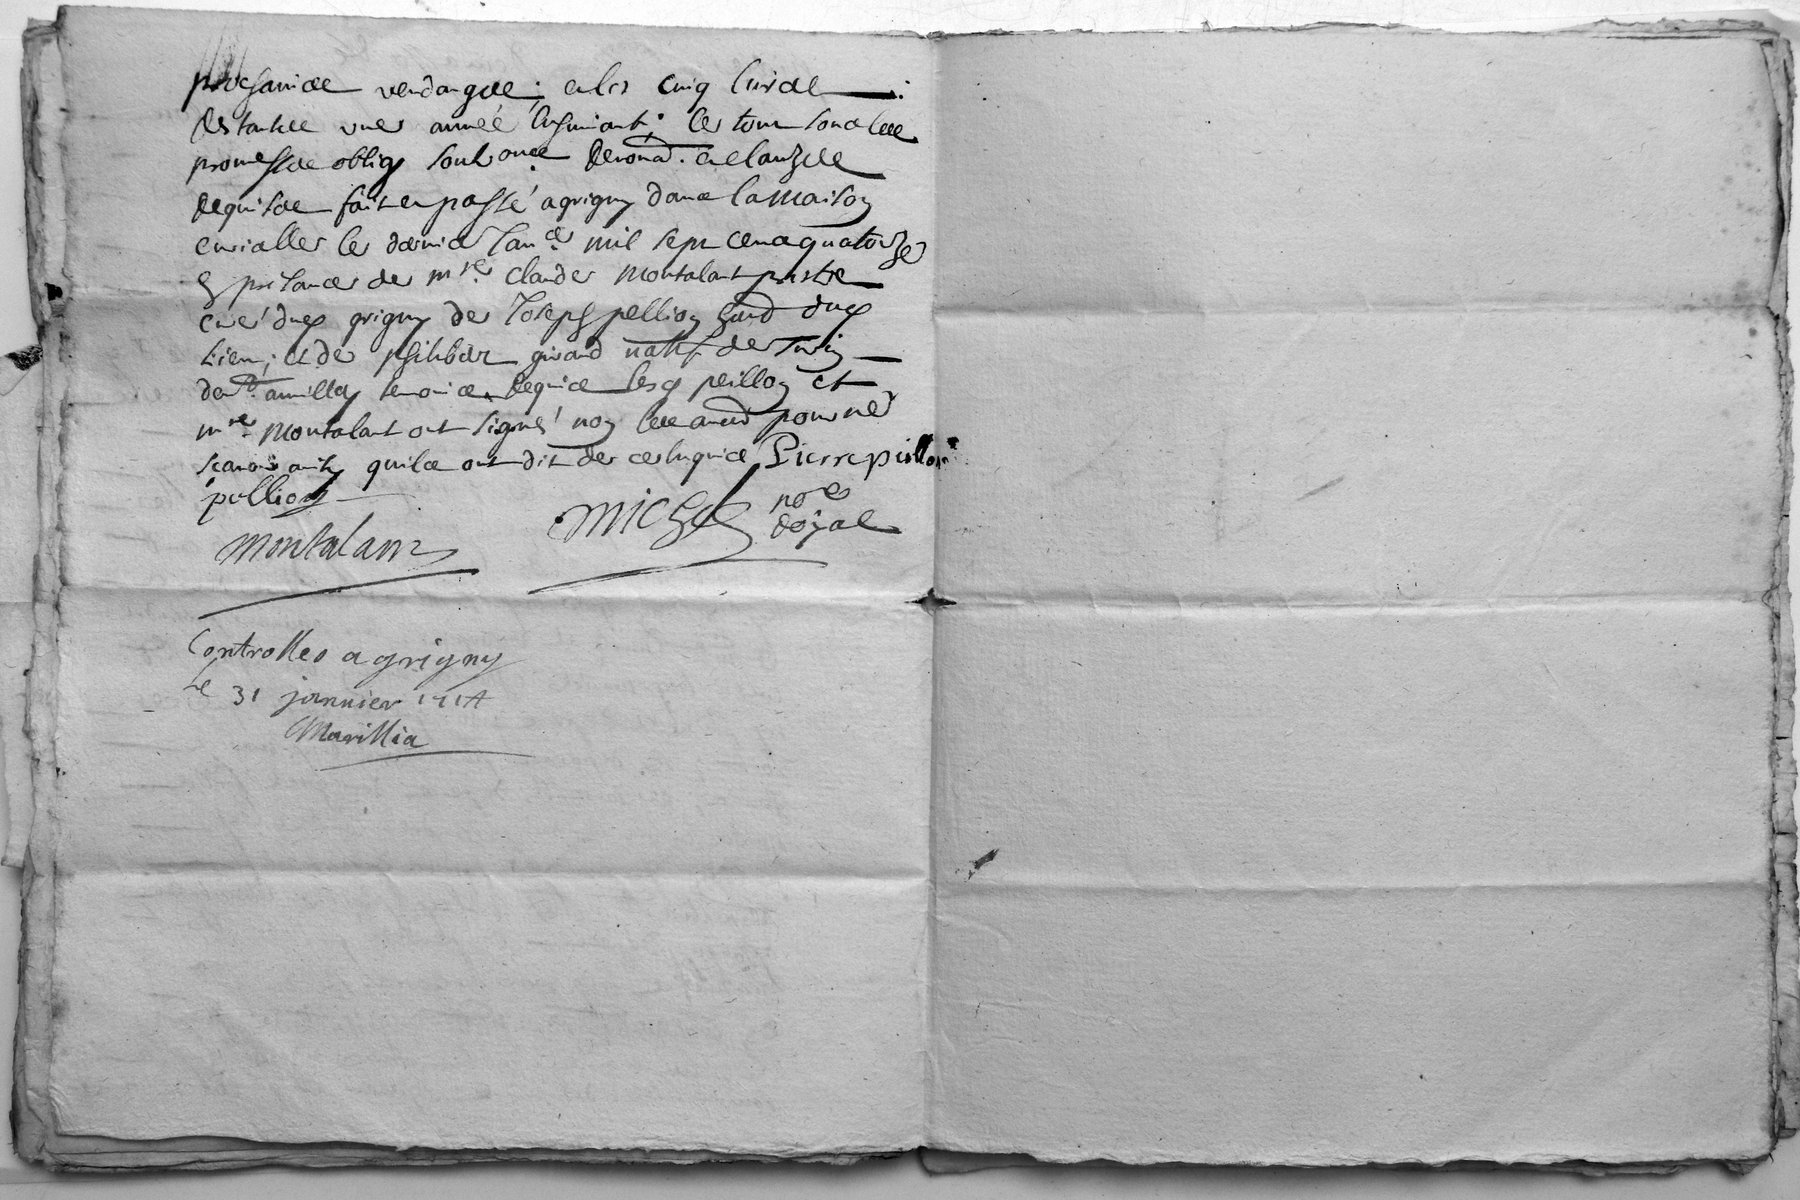 prochaines vendanges; et les cinq livres
restantes une année ensuivant; le tout sous les
promesses oblig soub. ones renonã. et clauzes
requises fait et passé a grigny dans la maison
curialle le dernier Janer mil sept cens quatorze
en presance de mre Claude Montalant prestre
curé dud grigny de Joseph pellion dud
lieu; et de philibert girard natif de Turin
tesmoins requis lesq peillon et
mre Montalant ont signé non les aud pour ne
scavoir ainsy quils ont dit de ce enquis Pierre peillon
pellion
Montalant michel nore royal
Controlles a grigny
le 31 jannier 1714
Marillia